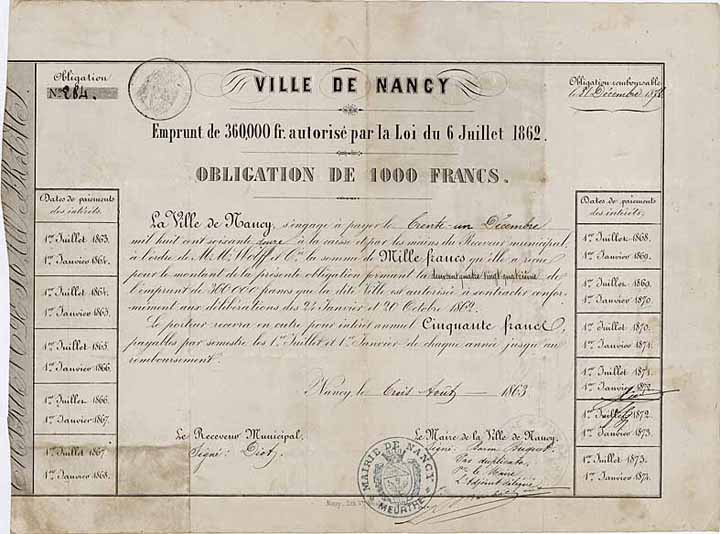 Obligation
No. 284.
VILLE DE NANCY
Obligation remboursable
le 31 Décembre
Emprunt de 360,000 fr. autorisé par la Loi du 6 Juillet 1862.
OBLIGATION DE 1000 FRANCS.
Dates de paiements
des intérêts.
1er Juillet 1863.
1er Janvier 1864.
1er Juillet 1864.
1er Janvier 1865.
1er Juillet 1865.
1er Janvier 1866.
1er Juillet 1866.
1er Janvier 1867.
1er Juillet 1867
1er Janvier 1868.
La Ville de Nancy, s'engage à payer le Trente-un Décembre
mil huit cent soixante onze à la caisse et par les mains du Receveur municipal,
à l'ordre de M. M. Wolff et Cie la somme de Mille francs qu'elle a reçu
pour le montant de la présente obligation formant la deux cent quatre vingt quatrième de
l'emprunt de 360,000 francs que la dite Ville est autorisée à contracter confor-
mément aux délibérations des 24 Janvier et 20 Octobre 1862.
Le porteur recevra en outre pour intérêt annuel Cinquante francs,
payables par semestre les 1er Juillet et 1er Janvier de chaque année jusqu'au
remboursement.
Nancy, le Trois Août 1863
Le Receveur Municipal.
Signé:
Le Maire de la Ville de Nancy.
Signé: Baron Buquet
Par duplicata,
Pr le Maire
L'Adjoint délégué
MAIRIE DE NANCY
MEURTHE
Dates de paiements
des intérêts.
1er Juillet 1868.
1er Janvier 1869.
1er Juillet 1869.
1er Janvier 1870.
1er Juillet 1870.
1er Janvier 1871.
1er Juillet 1871.
1er Janvier 1872.
1er Juillet 1872.
1er Janvier 1873.
1er Juillet 1873.
1er Janvier 1874.